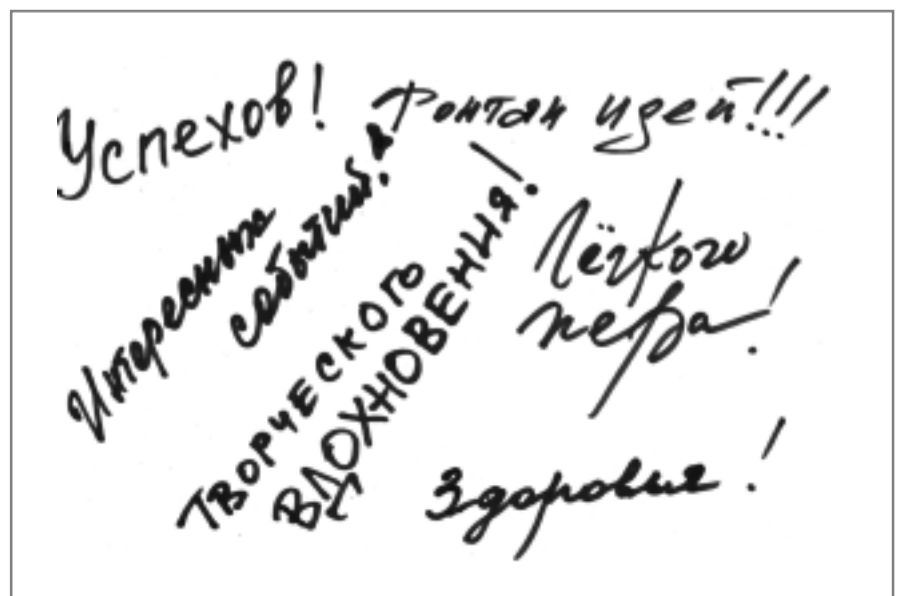 Успехов!
Фонтан идей!!!
Интересных
событий!
ТВОРЧЕСКОГО
ВДОХНОВЕНИЯ!
Лёгкого
пера!
Здоровья!